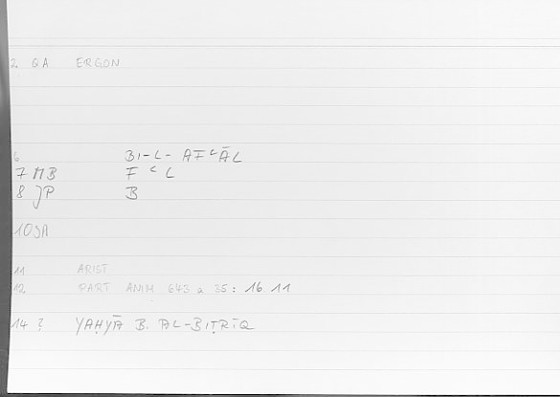 2 GA ERGON
6 BI-L- AFʿĀL
7 MB F ʿ L
8 JP B
10 JA
11 ARIST
12 PART ANIM 643 a 35: 16 11
14 ? YAḤYĀ B. AL-BIṬRĪQ